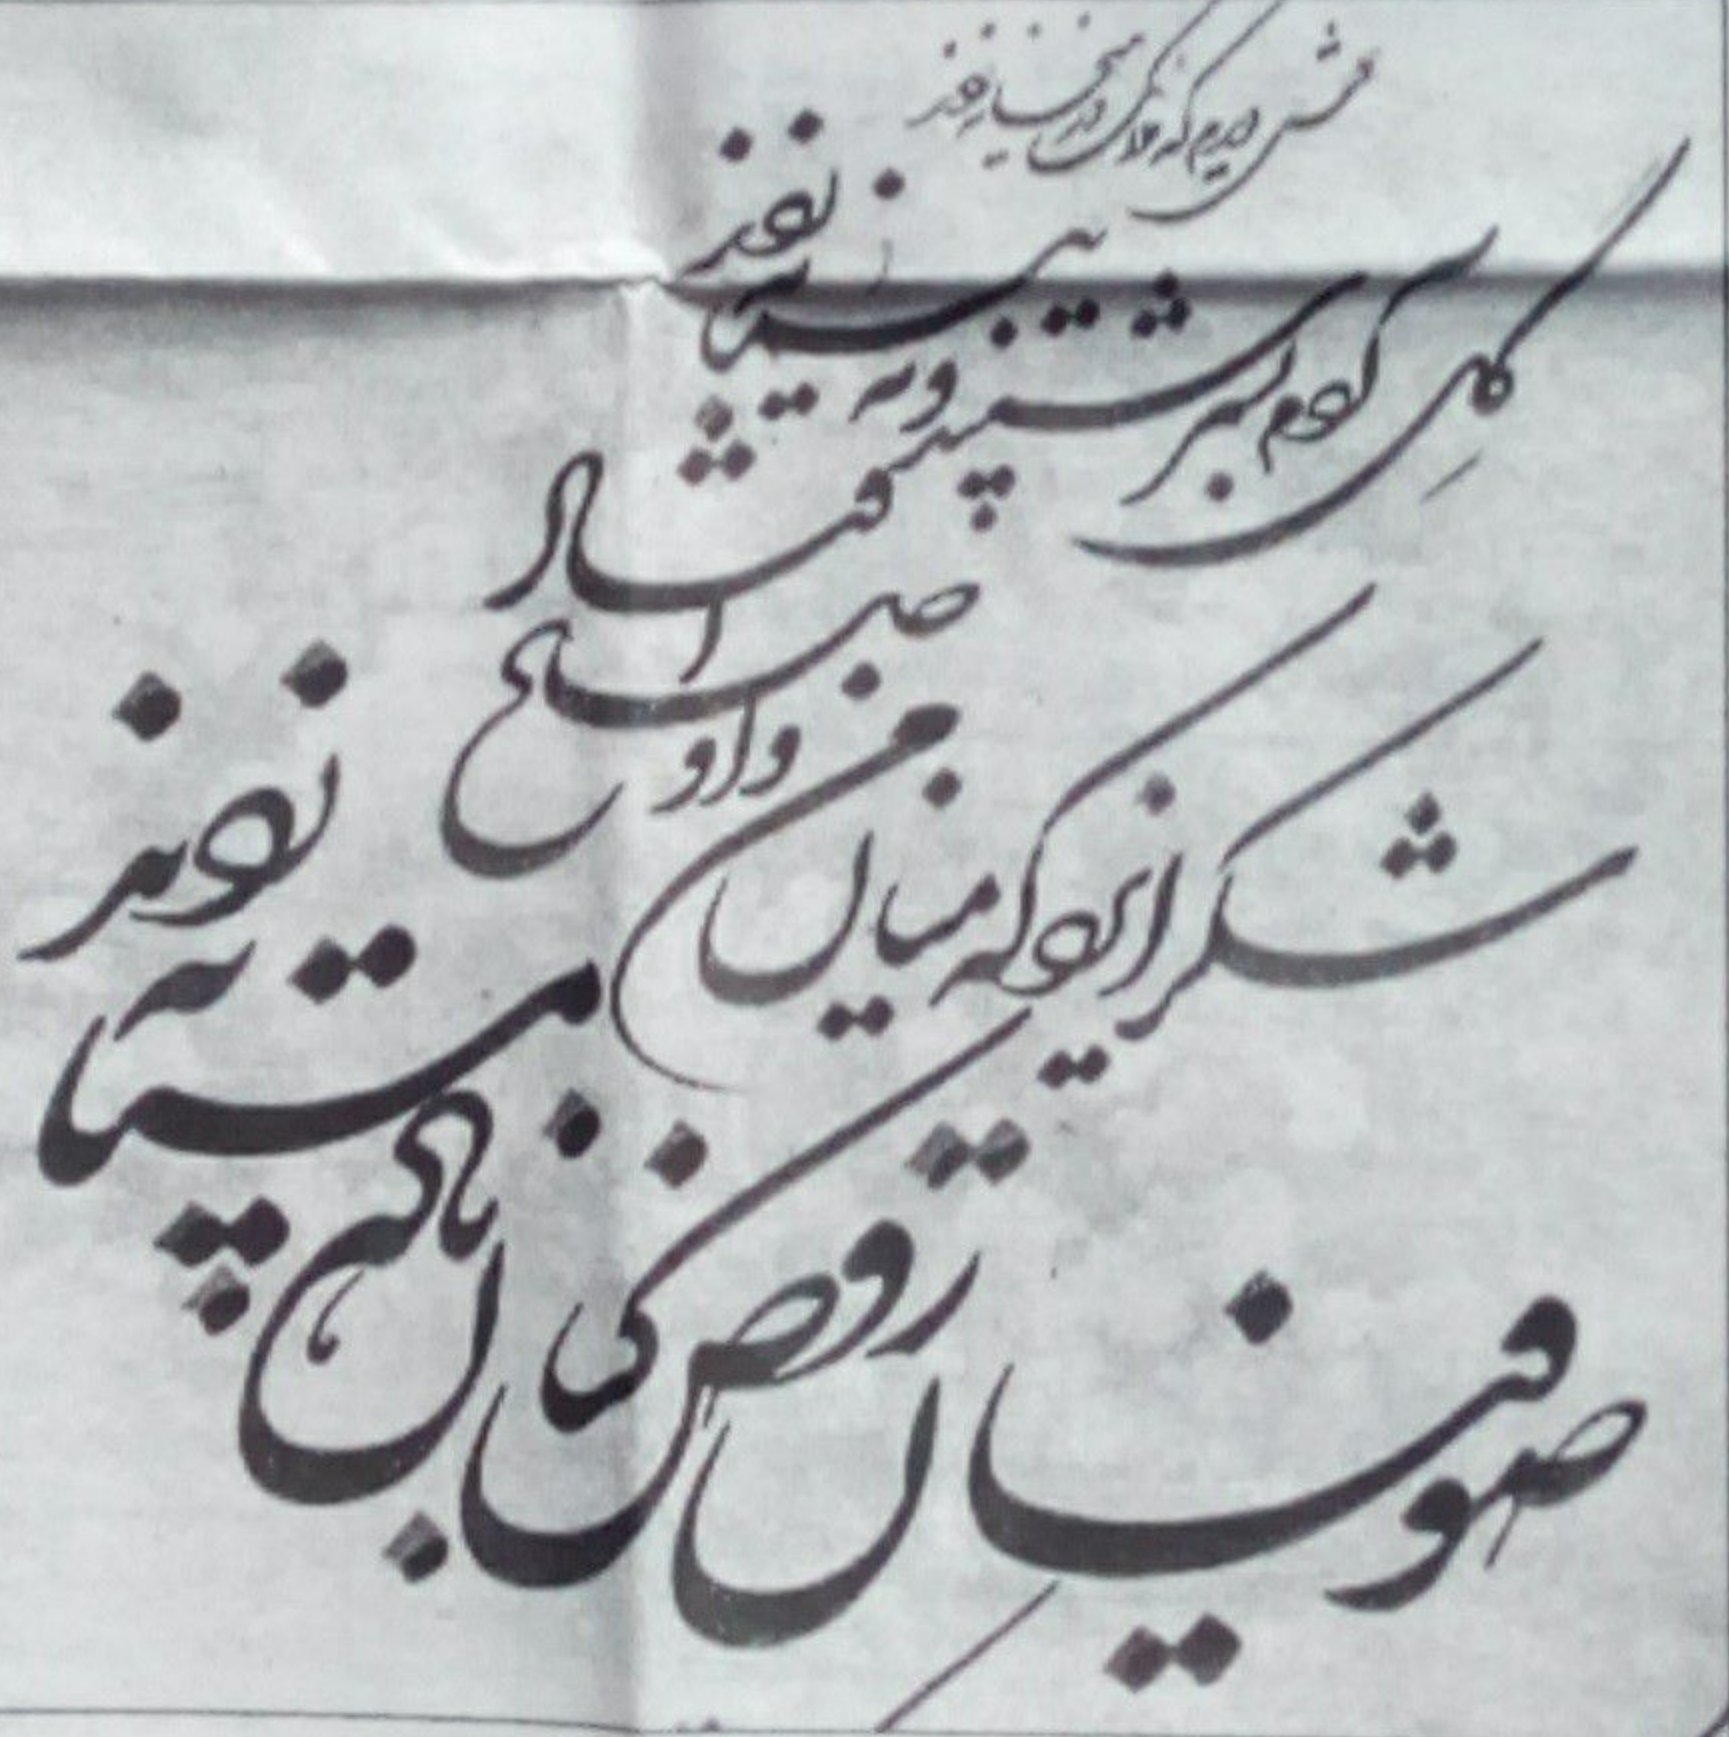 دوش دیدم که ملایک در میخانه زدند
گلِ آدم بسرشتند و به پیمانه زدند
شکر ایزد که میان من و او صلح افتاد
صوفیان رقص کنان مستانه زدند